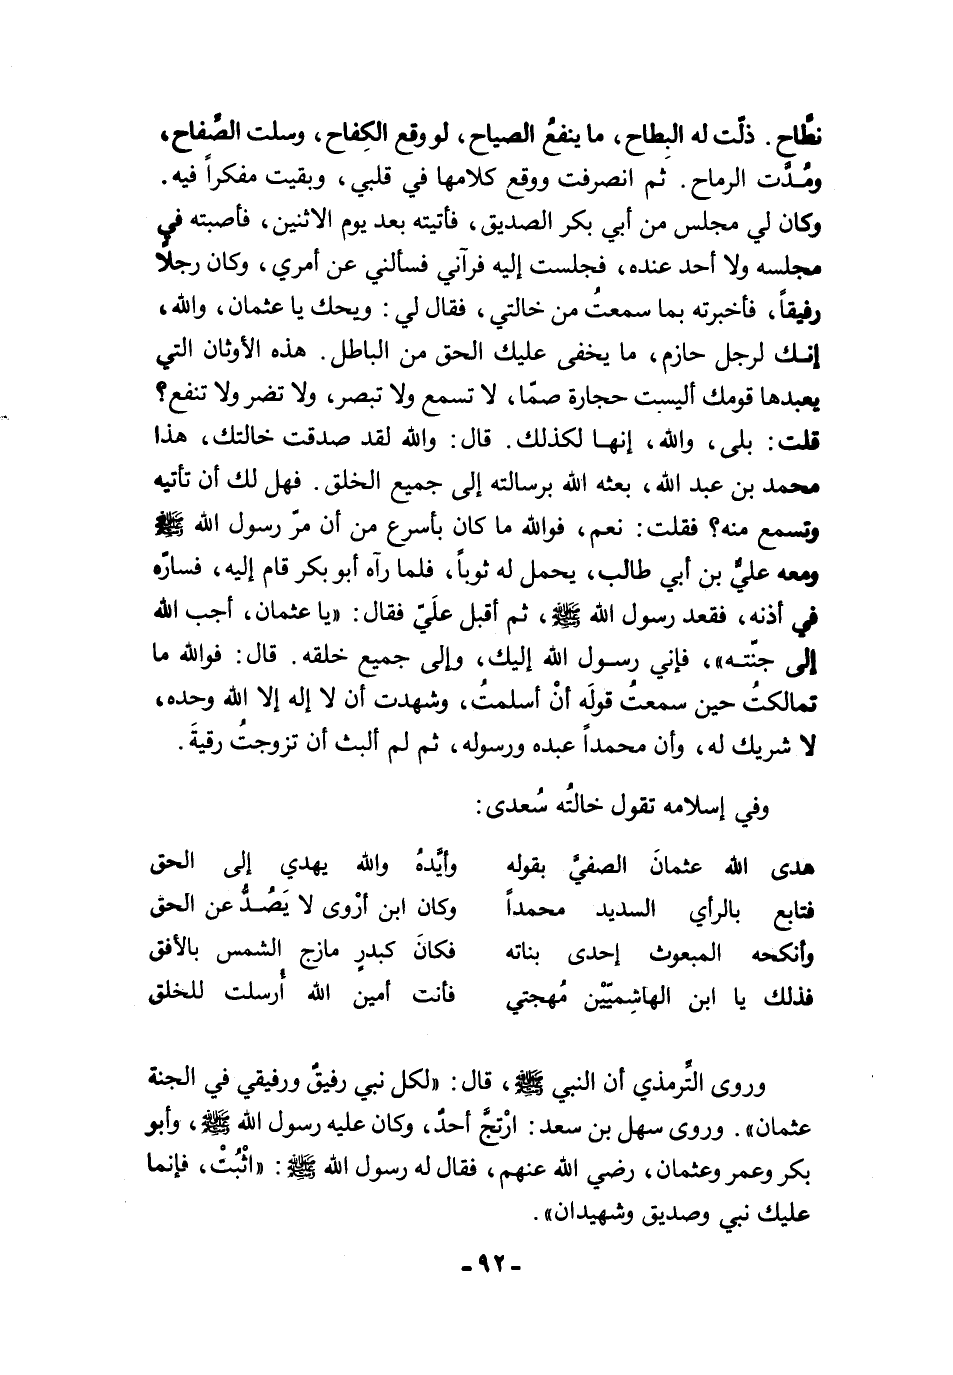 نطَّاح. ذلّت له البِطاح، ما ينفعُ الصياح، لو وقع الكِفاح، وسلت الصُّفاح،
ومُدَّت الرماح. ثم انصرفت ووقع كلامها في قلبي، وبقيت مفكراً فيه.
وكان لي مجلس من أبي بكر الصديق، فأتيته بعد يوم الاثنين، فأصبته في
مجلسه ولا أحد عنده، فجلست إليه فرآني فسألني عن أمري، وكان رجلاً
رفيقاً، فأخبرته بما سمعتُ من خالتي، فقال لي: ويحك يا عثمان، والله،
إنك لرجل حازم، ما يخفى عليك الحق من الباطل. هذه الأوثان التي
يعبدها قومك أليست حجارة صمّا، لا تسمع ولا تبصر، ولا تضر ولا تنفع؟
قلت: بلى، والله، إنها لكذلك. قال: والله لقد صدقت خالتك، هذا
محمد بن عبد الله، بعثه الله برسالته إلى جميع الخلق. فهل لك أن تأتيه
وتسمع منه؟ فقلت: نعم، فوالله ما كان بأسرع من أن مرّ رسول الله ﷺ
ومعه عليُّ بن أبي طالب، يحمل له ثوباً، فلما رآه أبو بكر قام إليه، فسارّه
في أذنه، فقعد رسول الله ﷺ، ثم أقبل علَيّ فقال: «يا عثمان، أجب الله
إلى جنّته»، فإني رسول الله إليك، وإلى جميع خلقه. قال: فوالله ما
تمالكتُ حين سمعتُ قولَه أنْ أسلمتُ، وشهدت أن لا إله إلا الله وحده،
لا شريك له، وأن محمداً عبده ورسوله، ثم لم ألبث أن تزوجتُ رقيةَ.
وفي إسلامه تقول خالتُه سُعدى:
هدى الله عثمانَ الصفيَّ بقوله وأيَّدهُ والله يهدي إلى الحق
فتابع بالرأي السديد محمداً وكان ابن أرْوى لا يَصُدُّ عن الحق
وأنكحه المبعوث إحدى بناته فكانَ كبدرٍ مازج الشمس بالأفق
فذلك يا ابن الهاشِميّيْن مُهجتي فأنت أمين الله أُرسلت للخلق
وروى التِّرمذي أن النبي ﷺ، قال: «لكل نبي رفيقٌ ورفيقي في الجنة
عثمان». وروى سهل بن سعد: ارْتجَّ أحدٌ، وكان عليه رسول الله ﷺ، وأبو
بكر وعمر وعثمان، رضي الله عنهم، فقال له رسول الله ﷺ: «اثْبُتْ، فإنما
عليك نبي وصديق وشهيدان».
- ٩٢ -